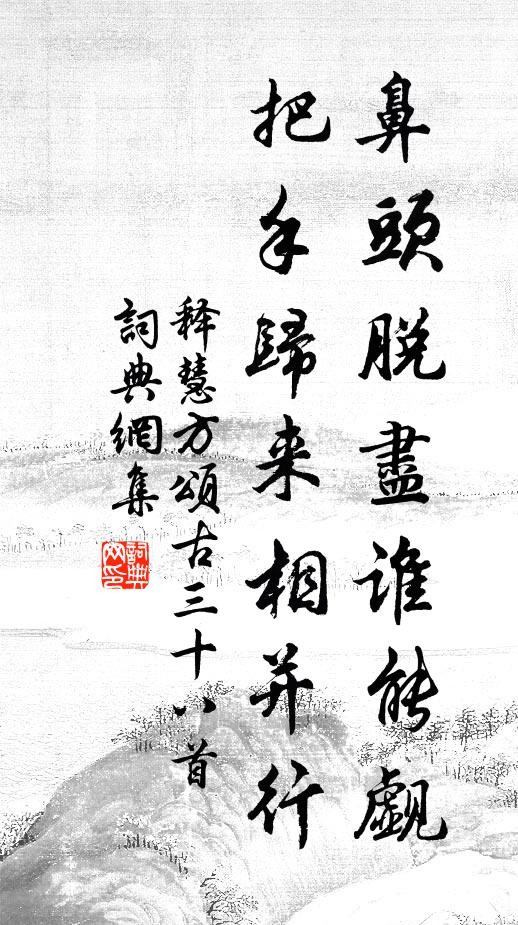 鼻頭脱盡誰能覷
把手歸来相并行
释慧方頌古三十八首
詞典網集
詞典網印